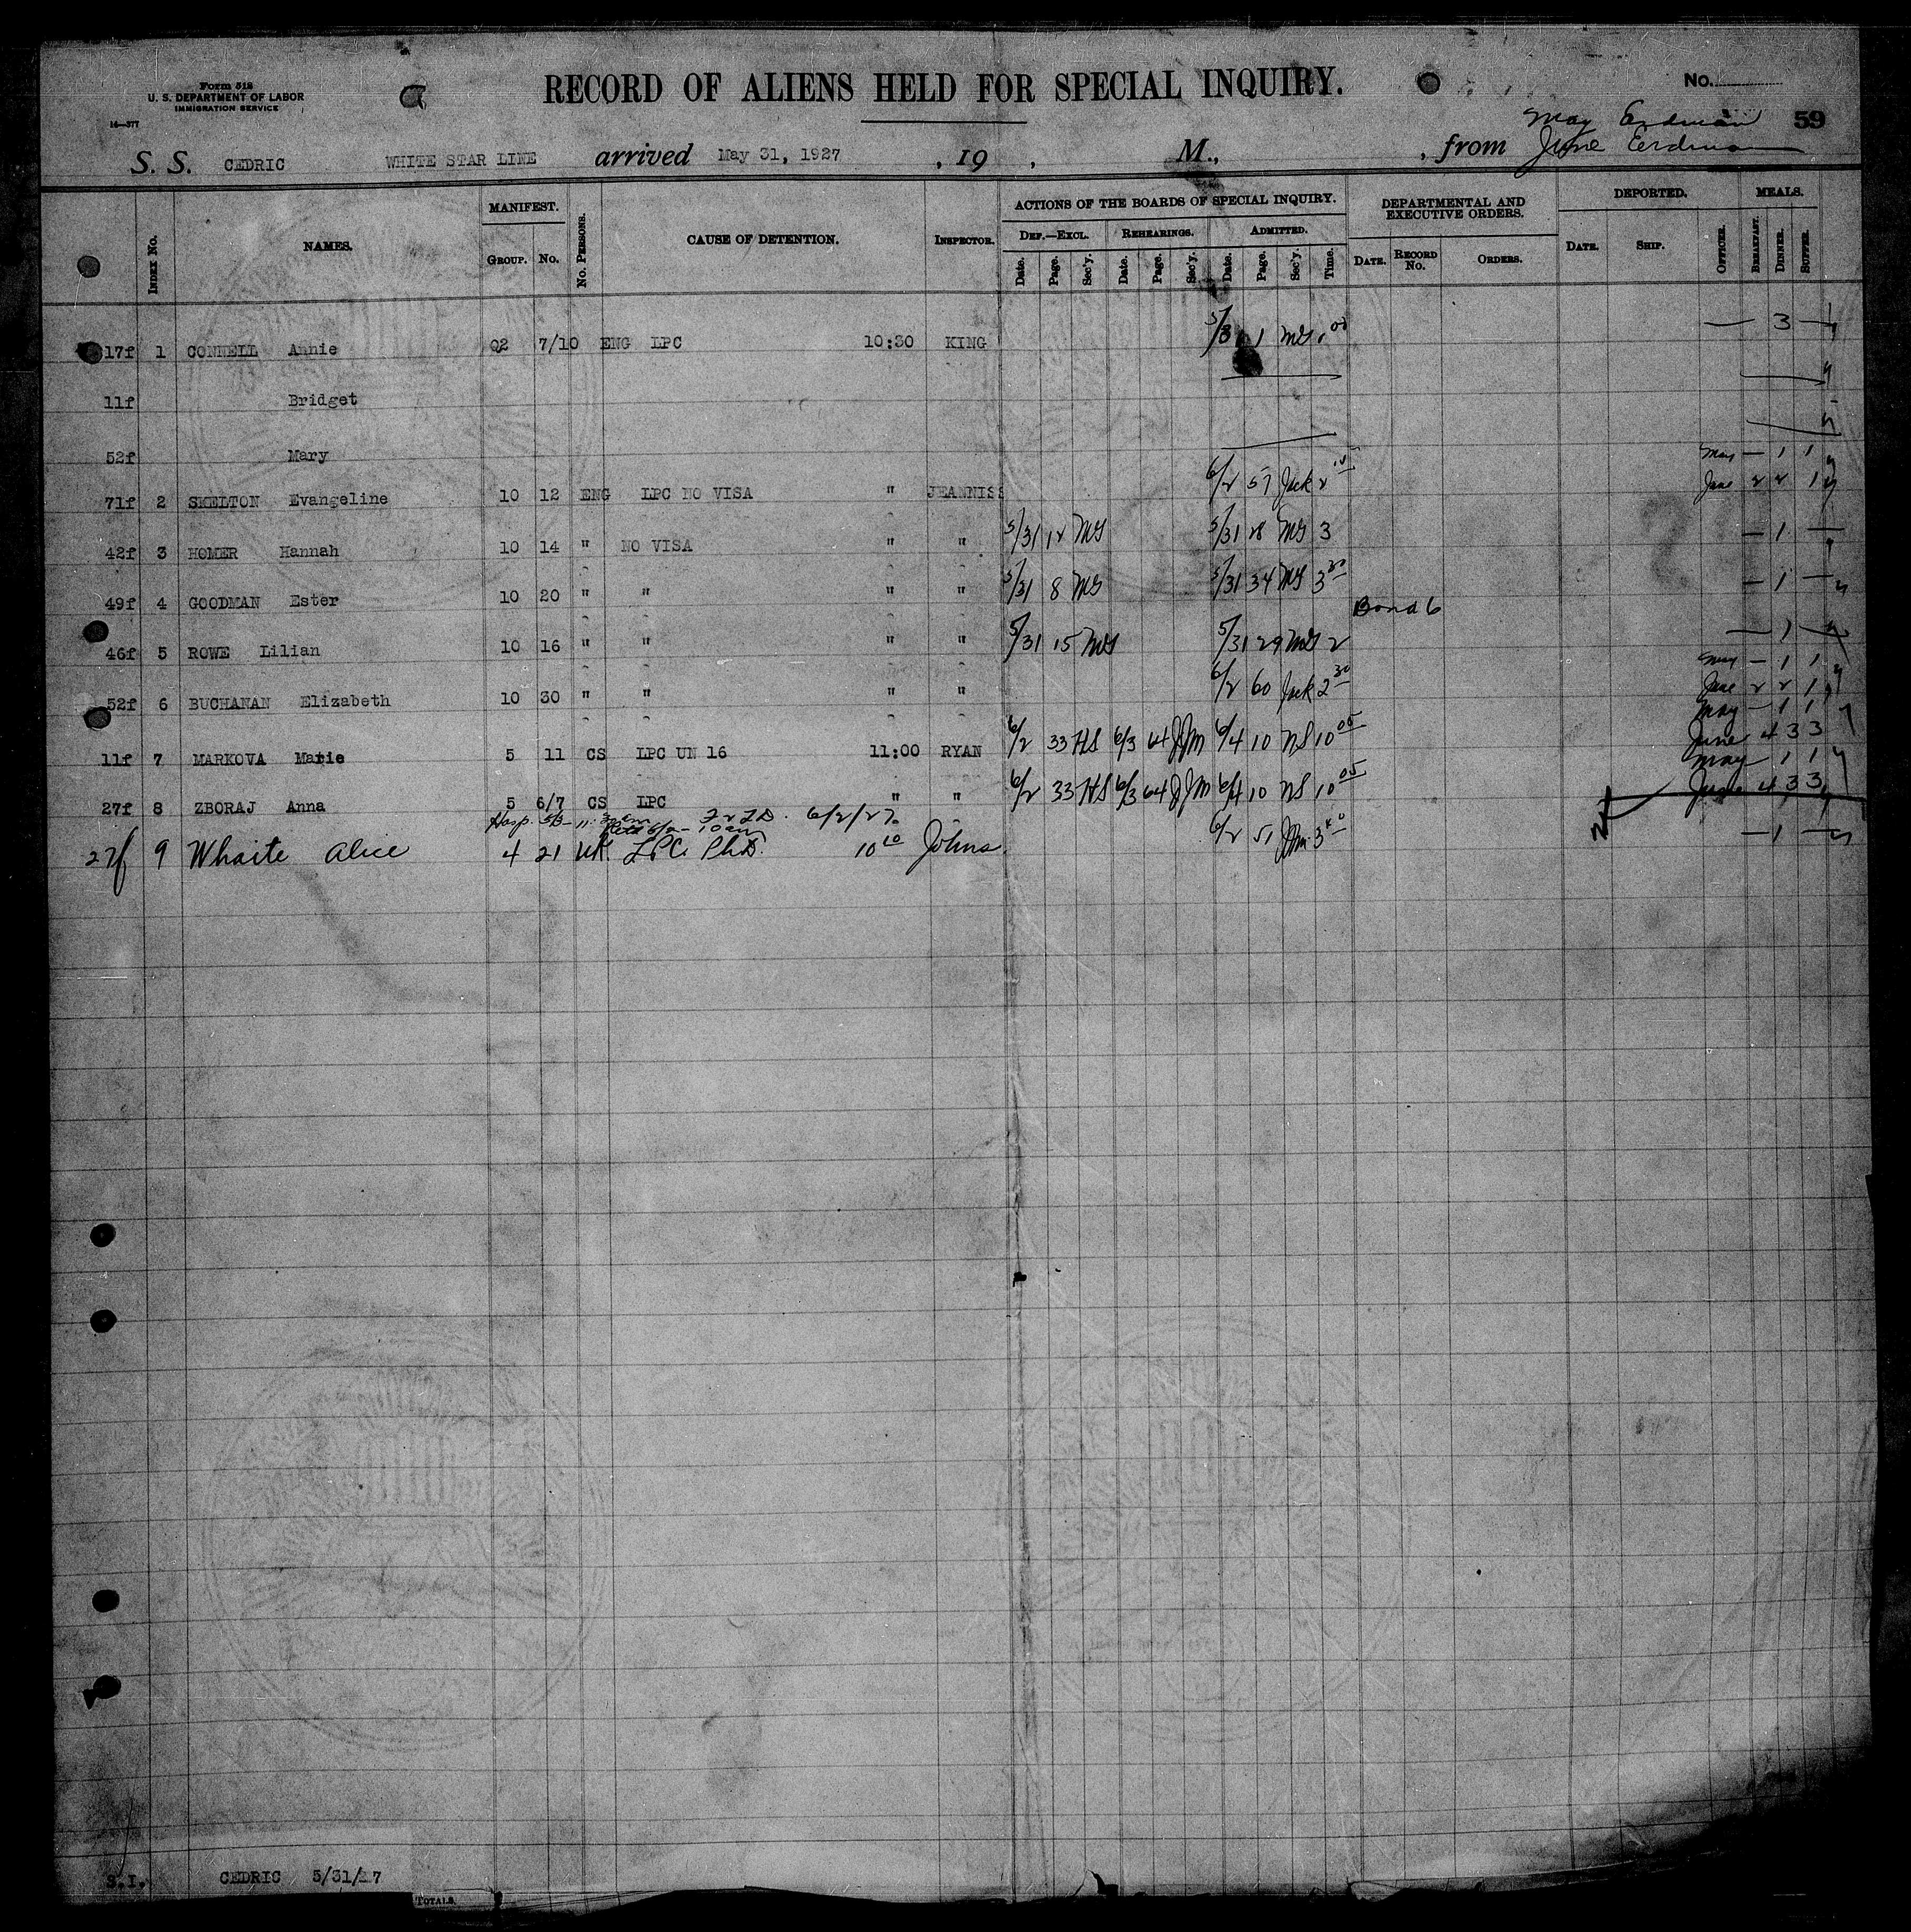 Form 512
U. S. DEPARTMENT OF LABOR
IMMIGRATION SERVICE
16—377
RECORD OF ALIENS HELD FOR SPECIAL INQUIRY.
No.
59
May Erdman
S. S. CEDRIC WHITE STAR LINE arrived May 31, 1927 , 19 , M., , from June Eerdman
INDEX No. NAMES. MANIFEST. GROUP. No. No. PERSONS. CAUSE OF DETENTION. INSPECTOR. ACTIONS OF THE BOARDS OF SPECIAL INQUIRY. DEF.—EXCL. REHEARINGS. ADMITTED. DEPARTMENTAL AND EXECUTIVE ORDERS. DEPORTED. MEALS.
Date. Page. Sec'y. Date. Page. Sec'y. Date. Page. Sec'y. Time. DATE. RECORD No. ORDERS. DATE. SHIP. OFFICER. BREAKFAST. DINNER. SUPPER.
17f 1 CONNELL Annie Q2 7/10 ENG LPC 10:30 KING 5/31 1 MS — 3 —
11f Bridget
52f Mary
May — 1 1
71f 2 SKELTON Evangeline 10 12 ENG LPC NO VISA " JEANNISS 6/2 57 Jack June 2 2 1
42f 3 HOMER Hannah 10 14 " NO VISA " " 5/31 12 MS 5/31 28 MS 3 — 1 —
49f 4 GOODMAN Ester 10 20 " " " " 5/31 8 MS 5/31 34 MS 3 30 — 1 —
Bond 6
46f 5 ROWE Lilian 10 16 " " " " 5/31 15 MS 5/31 29 MS 2 — 1 —
May — 1 1
52f 6 BUCHANAN Elizabeth 10 30 " " " " 6/2 60 Jack 2 30 June 2 2 1
May — 1 1
11f 7 MARKOVA Marie 5 11 CS LPC UN 16 11:00 RYAN 6/2 33 HS 6/3 64 JJM 6/4 10 NS 10 05 June 4 3 3
May 1 1
27f 8 ZBORAJ Anna 5 6/7 CS LPC " " 6/2 33 HS 6/3 64 JJM 6/4 10 NS 10 05 June 4 3 3
Hosp. 6/2/27
27f 9 Whaite Alice 4 21 UK. LPC. PhD. 10 10 Johns 6/2 51 — 1 —
S.I. CEDRIC 5/31/27
TOTALS.